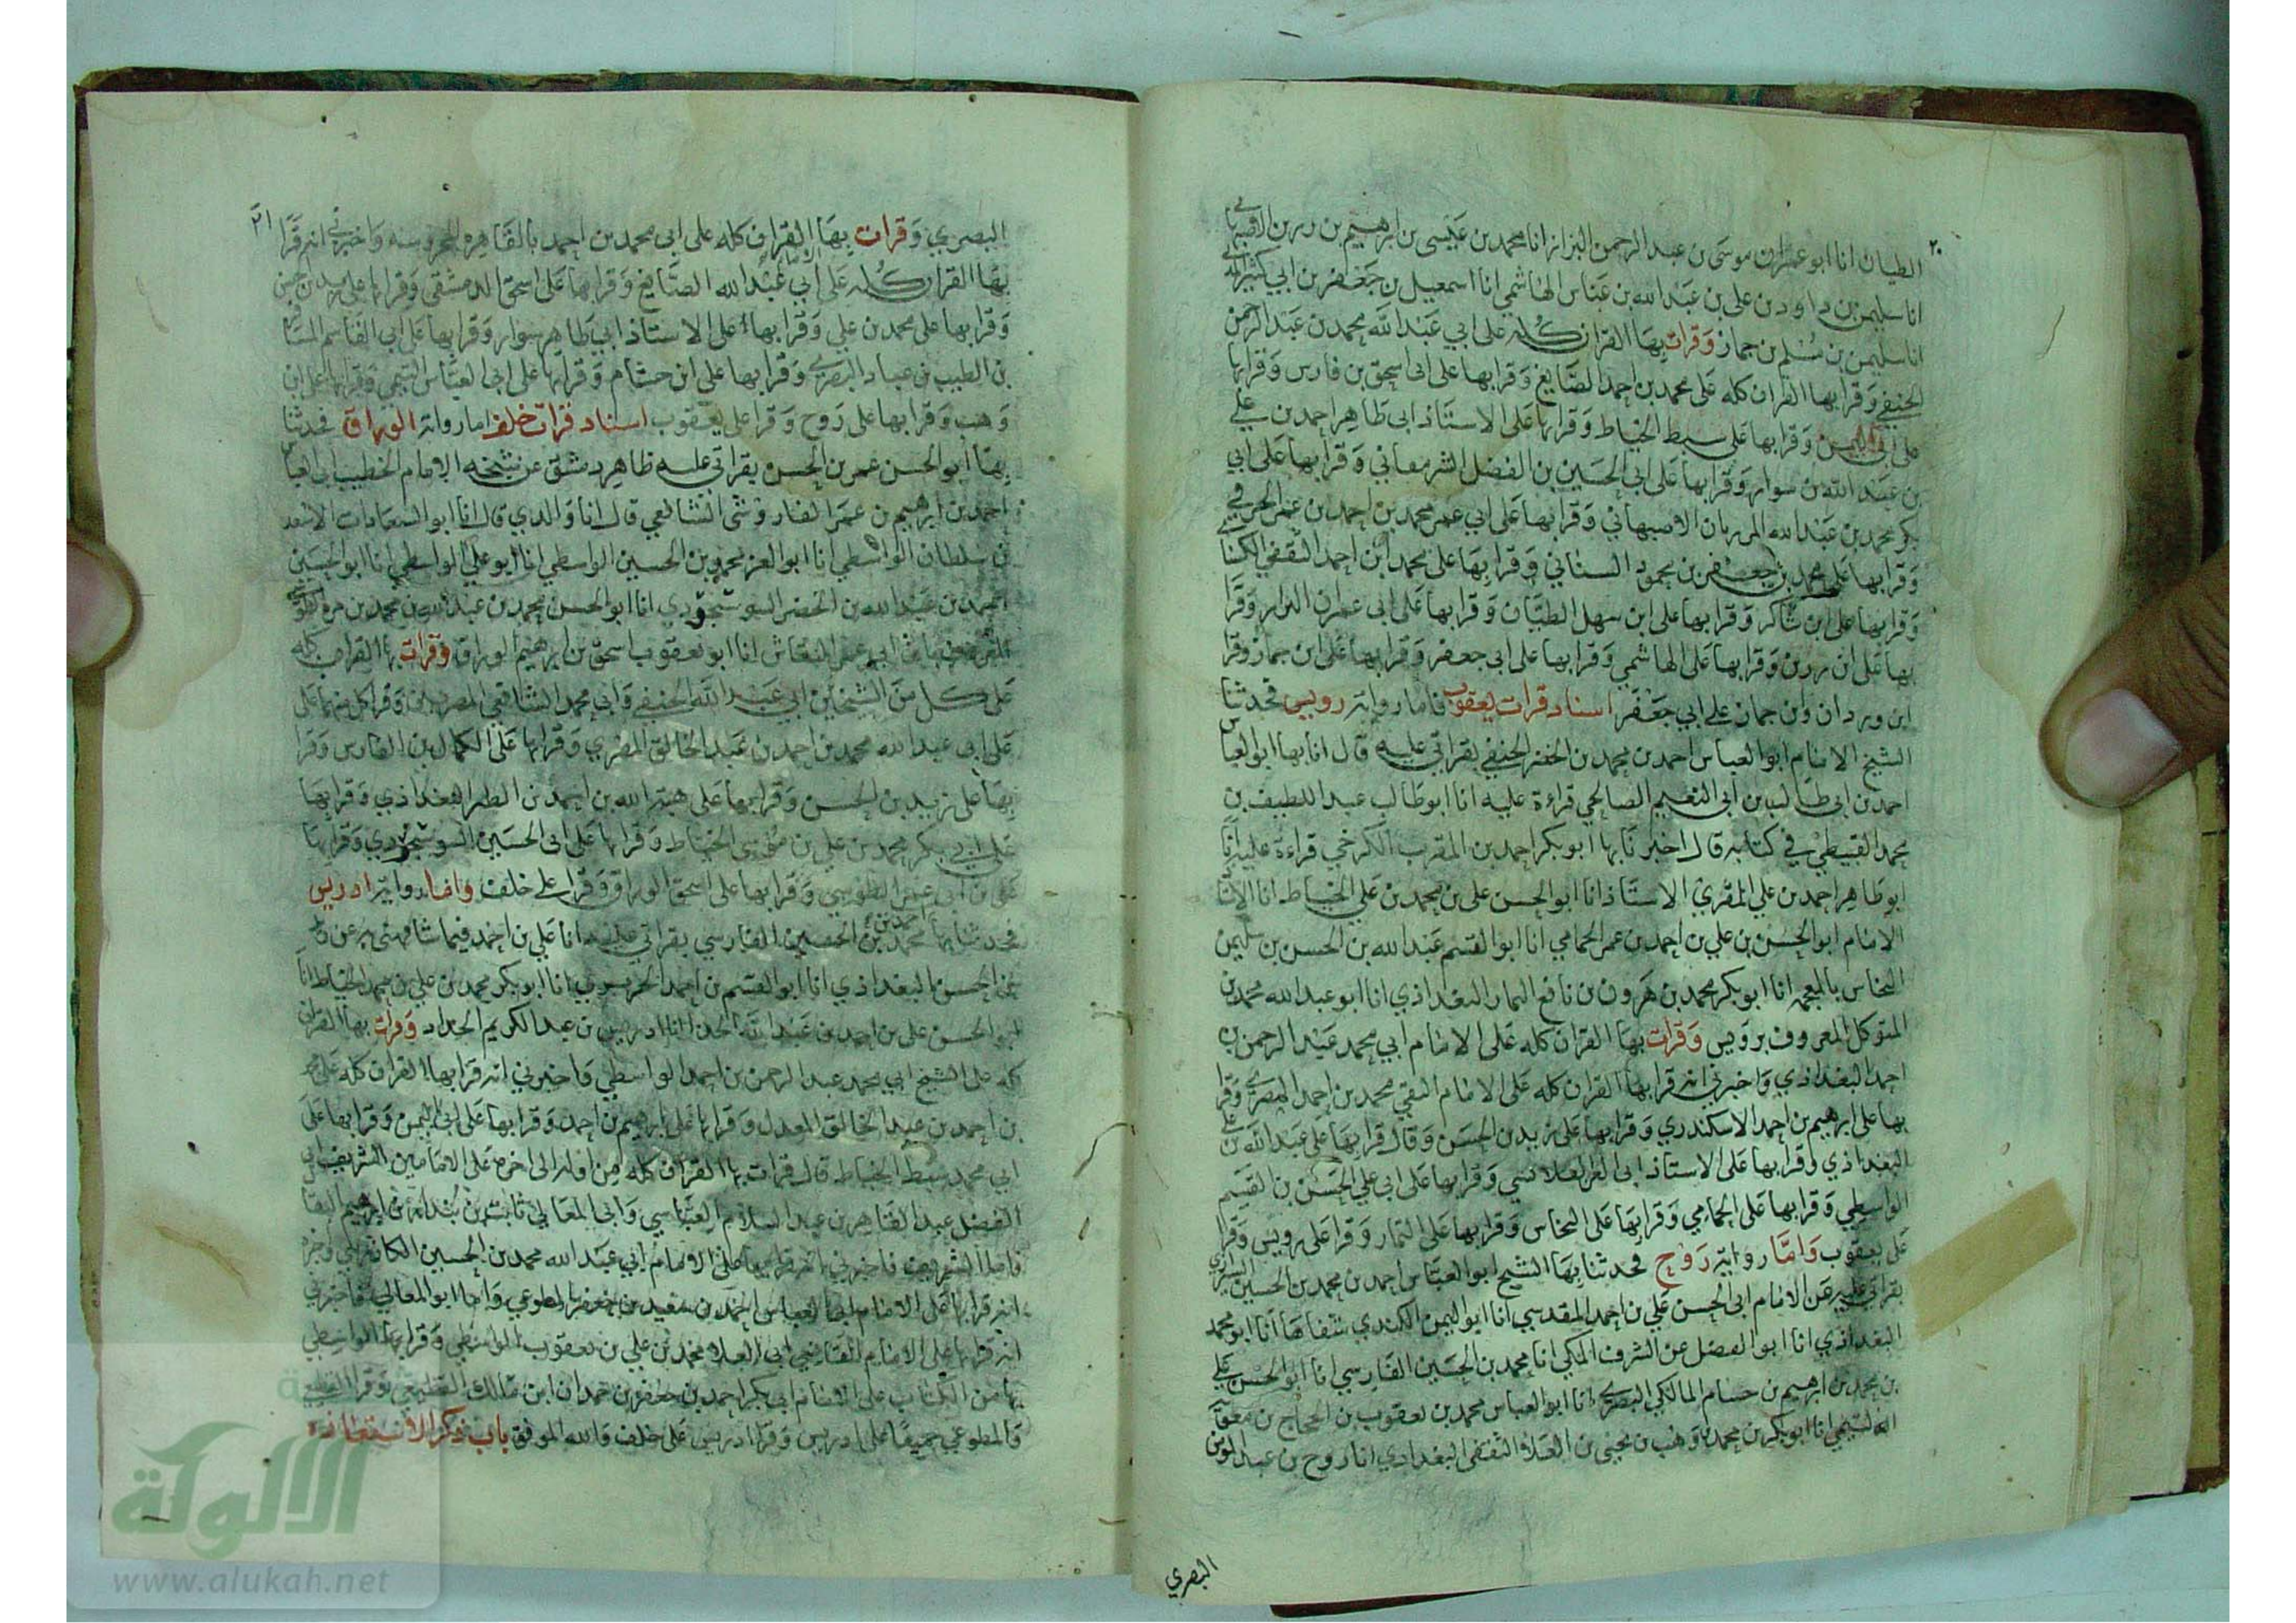 ٢٠
الطيان انا ابو عمران موسى بن عبد الرحمن البزاز انا محمد بن عيسى بن ابرهيم بن رزين الاصبهاني
انا سليمن بن داود بن علي بن عبد الله بن عباس الهاشمي انا اسمعيل بن جعفر بن ابي كثير
انا سليمن بن مسلم بن جماز وقرات بها القران كله على ابي عبد الله محمد بن عبد الرحمن
الحنفي وقرا بها القران كله على محمد بن احمد الصايغ وقرا بها على ابي اسحق بن فارس وقرا بها
على ابي اليمن وقرا بها على سبط الخياط وقرا بها على الاستاذ ابي طاهر احمد بن علي
بن عبد الله بن سوار وقرا بها على ابي الحسين بن الفضل الشرمقاني وقرا بها على ابي
بكر محمد بن عبد الله المرزبان الاصبهاني وقرا بها على ابي عمر محمد بن احمد بن عمر الخرقي
وقرا بها على محمد بن جعفر بن محمود السناني وقرا بها على محمد ابن احمد الثقفي الكسائي
وقرا بها على ابن شاكر وقرا بها على ابن سهل الطيان وقرا بها على ابي عمران البزاز وقرا
بها على ابن رزين وقرا بها على الهاشمي وقرا بها على ابي جعفر وقرا بها على ابن جماز وقرا
ابن وردان وابن جماز على ابي جعفر اسناد قرات يعقوب فاما رواية رويس فحدثنا
الشيخ الامام ابو العباس احمد بن محمد بن الخضر الحنفي بقراتي عليه قال انا بها ابو العباس
احمد بن ابي طالب بن ابي النعيم الصالحي قراءة عليه انا ابو طالب عبد اللطيف بن
محمد القبيطي في كتابه قال اخبرنا بها ابو بكر احمد بن المقرب الكرخي قراءة عليه انا
ابو طاهر احمد بن علي المقري الاستاذ انا ابو الحسن علي بن محمد بن علي الخياط انا
الامام ابو الحسن بن علي بن احمد بن عمر الحمامي انا ابو القسم عبد الله بن الحسن بن سليمن
النخاس بالمعجمه انا ابو بكر محمد بن هرون بن نافع التمار البغداذي انا ابو عبد الله محمد بن
المتوكل المعروف برويس وقرات بها القران كله على الامام ابي محمد عبد الرحمن بن
احمد البغداذي واخبرني انه قرا بها القران كله على الامام التقي محمد بن احمد المصري وقرا
بها على ابرهيم بن احمد الاسكندري وقرا بها على زيد بن الحسن وقال قرا بها على عبد الله بن علي
البغداذي وقرا بها على الاستاذ ابي العز القلانسي وقرا بها على ابي علي الحسن بن القسم
الواسطي وقرا بها على الحمامي وقرا بها على النخاس وقرا بها على التمار وقرا على رويس وقرا
على يعقوب واما رواية روح فحدثنا بها الشيخ ابو العباس احمد بن محمد بن الحسين الشيرازي
بقراتي عليه عن الامام ابي الحسن علي بن احمد المقدسي انا ابو اليمن الكندي شفاها انا ابو محمد
البغداذي انا ابو الفضل عن الشرف المكي انا محمد بن الحسين الفارسي انا ابو الحسن علي
بن محمد بن ابرهيم بن خشنام المالكي البصري انا ابو العباس محمد بن يعقوب بن الحجاج بن معوية
التيمي انا ابو بكر بن محمد بن وهب بن يحيى بن العلاء الثقفي البغدادي انا روح بن عبد المومن
البصري
٢١
البصري وقرات بها القران كله على ابي محمد بن احمد بالقاهره المحروسه واخبرني انه قرا
بها القران كله على ابي عبد الله الصايغ وقرا بها على اسحق الدمشقي وقرا بها على زيد بن حسن
وقرا بها على محمد بن علي وقرا بها على الاستاذ ابي طاهر سوار وقرا بها على ابي القاسم المسافر
بن الطيب بن عباد البصري وقرا بها على ابن خشنام وقرا بها على ابي العباس التيمي وقرا بها على ابن
وهب وقرا بها على روح وقرا على يعقوب اسناد قرات خلف اما رواية الوراق فحدثنا
بها ابو الحسن عمر بن الحسن بقراتي عليه ظاهر دمشق عن شيخه الامام الخطيب ابي العباس
احمد بن ابرهيم بن عمر الفاروثي الشافعي قال انا والدي قال انا ابو السعادات الاسعد
بن سلطان الواسطي انا ابو العز محمد بن الحسين الواسطي انا ابو علي الواسطي انا ابو الحسين
احمد بن عبد الله بن الخضر السوسنجردي انا ابو الحسن محمد بن عبد الله بن محمد بن مره
عمر النقاش انا ابو يعقوب اسحق بن ابرهيم الوراق وقرات بها القران كله
على كل من الشيخين ابي عبد الله الحنفي وابي محمد الشافعي المصريين وقرا كل منهما على
على ابي عبد الله محمد بن احمد بن عبد الخالق المقري وقرا بها على الكمال بن الفارس وقرا
بها على زيد بن الحسن وقرا بها على هبة الله بن احمد بن الطبر البغداذي وقرا بها
على ابي بكر محمد بن علي بن موسى الخياط وقرا بها على ابي الحسين السوسنجردي وقرا بها
على بن ابي عمر الطوسي وقرا بها على اسحق الوراق وقرا على خلف واما رواية ادريس
فحدثنا بها محمد بن احمد بن الحسين الفارسي بقراتي عليه انا علي بن احمد فيما شافهني به عن
الحسن البغداذي انا ابو القسم بن احمد الحريري انا ابو بكر محمد بن علي بن محمد الخياط انا
ابو الحسن علي بن احمد بن عبد الله الحذا انا ادريس بن عبد الكريم الحداد وقرات بها القران
كله على الشيخ ابي محمد عبد الرحمن بن احمد الواسطي واخبرني انه قرا بها القران كله على محمد
بن احمد بن عبد الخالق المعدل وقرا بها على ابرهيم بن احمد وقرا بها على ابي اليمن وقرا بها على
ابي محمد سبط الخياط قال قرات بها القران كله من اوله الى اخره على الامامين الشريف ابي
الفضل عبد القاهر بن عبد السلام العباسي وابي المعالي ثابت بن بندار بن ابرهيم البقال
فاما الشريف فاخبرني انه قرا بها على الامام ابي عبد الله محمد بن الحسين الكارزيني واخبره
انه قرا بها على الامام ابي العباس الحسن بن سعيد بن جعفر المطوعي واما ابو المعالي فاخبرني
انه قرا بها على الامام القاضي ابي العلاء محمد بن علي بن يعقوب الواسطي وقرا بها الواسطي
بها من الكتاب على الامام ابي بكر احمد بن جعفر بن حمدان ابن مالك القطيعي وقرا القطيعي
والمطوعي جميعا على ادريس وقرا ادريس على خلف والله الموفق باب ذكر الاستعاذه
الالوكة
www.alukah.net